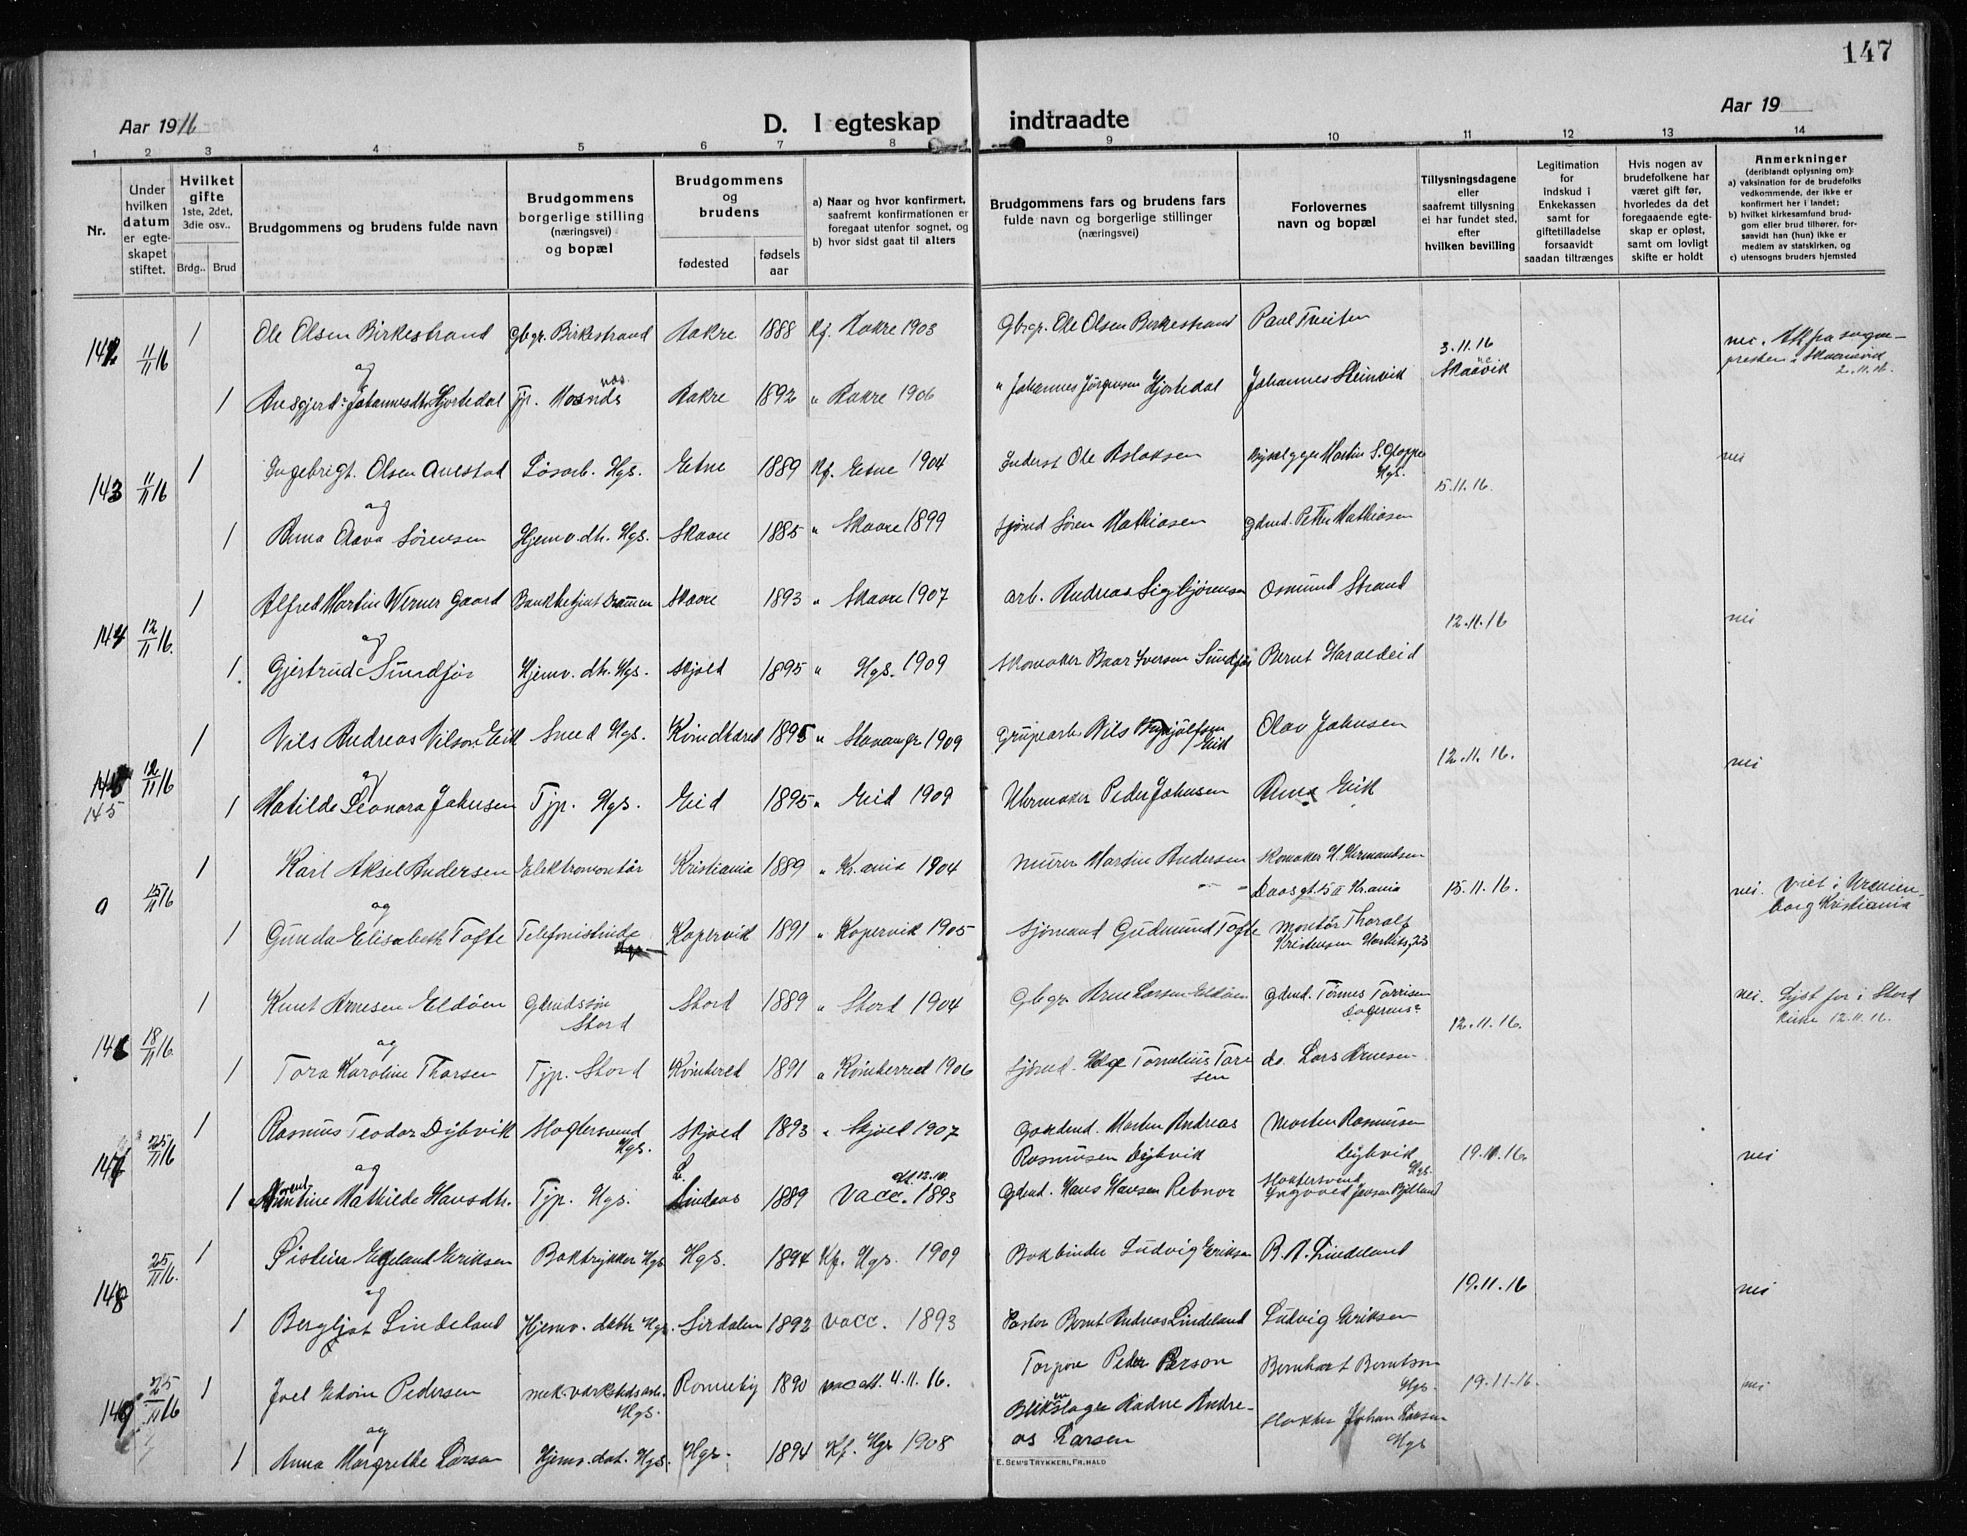 147
Aar 1916 D. I egteskap indtraadte Aar 19
1 2 3 4 5 6 7 8 9 10 11 12 13 14
Nr.
Under hvilken datum er egteskapet stiftet.
Hvilket gifte 1ste, 2det, 3die osv.. Brdg.. Brud
Brudgommens og brudens fulde navn
Brudgommens borgerlige stilling (næringsvei) og bopæl
Brudgommens og brudens fødested fødsels aar
a) Naar og hvor konfirmert, saafremt konfirmationen er foregaat utenfor sognet, og
b) hvor sidst gaat til alters
Brudgommens fars og brudens fars fulde navn og borgerlige stillinger (næringsvei)
Forlovernes navn og bopæl
Tillysningsdagene eller saafremt tillysning ei har fundet sted, efter hvilken bevilling
Legitimation for indskud i Enkekassen samt for giftetilladelse forsaavidt saadan tiltrænges
Hvis nogen av brudefolkene har været gift før, hvorledes da det foregaaende egteskap er opløst, samt om lovligt skifte er holdt
Anmerkninger (deriblandt oplysning om):
a) vaksination for de brudefolks vedkommende, der ikke er konfirmert her i landet;
b) hvilket kirkesamfund brudgom eller brud tilhører, forsaavidt han (hun) ikke er medlem av statskirken, og
c) utensogns bruders hjemsted
1 Ole Olsen Birkestrand Gbgr. Birkestrand Aakre 1888 Kf. Aakre 1903 Gbgr. Ole Olsen Birkestrand Paul Tveiten
142 11/11 16 og 3.11.16 Skaanevik nei. Att fra sogne-
presten i Skaanevik 2.11.16.
1 Johannesdtr. Hjortedal Tjp. Aakre 1892 " Aakre 1906 " Johannes Jørgensen Hjortedal Johannes Steinvik
1 Ingebrigt Olsen Austad Løsarb. Hgs. Etne 1889 Kf. Etne 1904 Inderst Ole Aslaksen Martin S. Gloppe Hgs. nei
143 11/11 16 og 15.11.16.
1 Anna Olava Sørensen Hjemv. dt. Hgs. Skaare 1885 " Skaare 1899 Sjømd Søren Mathiasen Gdmd. Petter Mathiasen
1 Alfred Martin Werner Gaard Bankbetjent Drammen Skaare 1893 " Skaare 1907 arb. Andreas Sigbjørnsen Osmund Strand
144 12/11 16. og 12.11.16 nei
1. Gjertrude Sundfør Hjemv. dt. Hgs. Skjold 1895 " Hgs. 1909 Skomaker Baar Iversen Sundfør Bernt Haraldeid
1 Nils Andreas Nilsen Eik Smed Hgs. Kvindherred 1895 " Stavanger 1909 Grubearb. Nils Eik Olav Johnsen
145 12/11 16 og 12.11.16. nei
1 Matilde Leonora Johnsen Tjp. Hgs. Eid 1895 " Eid 1909 Uhrmaker Peder Johnsen Anna Eik
1 Karl Aksel Andersen Elektromontør Kristiania 1889 " Kr.ania 1904 Murer Martin Andersen Skomaker H. Hermandsen
a 15/11 16 og Daasgt. 5 II Kr.ania 15.11.16. nei. Viet i Uranien-
borg Kristiania
1 Gunda Elisabeth Tofte Telefonistinde Kopervik 1891 " Kopervik 1905 Sjømand Gudmund Tofte Montør Thoralf Kristensen
1 Knut Arnesen Eldøen Gdmdssøn Stord Stord 1889 " Stord 1904 Gbgr. Arne Larsen Eldøen Gdmd. Tønnes nei. Lyst for i Stord
kirke 12.11.16.
146 18/11 16. og 12.11.16.
1 Tora Karoline Thorsen Tjp. Stord Kvinherred 1891 " Kvinherred 1906 Sjømd. Helge Tornelius Tore-
sen do. Lars Arnesen
1 Rasmus Teodor Dybvik Slagtersvend Hgs. Skjold 1893 " Skjold 1907 Gaardmd. Morten Andreas Morten Rasmusen
147 25/11 16 og Rasmusen Dybvik Dybvik Hgs. 19.11.16. nei
1 Mattilde Hansdtr. Tjp. Hgs. Lindaas 1889 Vacc. 1893 Gdmd. Hans Hansen Rebnor Slaktersvend Ingvald Jensen Bjelland
1 Øistein Egeland Eriksen Boktrykker Hgs Hgs. 1894 Kf. Hgs. 1909 Bokbinder Ludvig Eriksen B. A. Lindeland
148 25/11 16. og 19.11.16 nei
1 Bergljot Lindeland Hjemv. datter Hgs. Sirdalen 1892 vacc. 1893 Pastor Bernt Andreas Lindeland Ludvig Eriksen
1 Joel Edvin Pedersen mek. verkstedsarb. Hgs. Ronneby 1890 vac att. 4.11.16. Torpare Peder Person Bernhart Berntsen Hgs. 19.11.16. nei
149 25/11 16 og
1 Anna Margrethe Larsen Hjemv. dat. Hgs. Hgs. 1894 Kf. Hgs 1908 Blikslager Andre-
as Larsen Slakter Johan Larsen Hgs
E. SEM'S TRYKKERI, FR.HALD